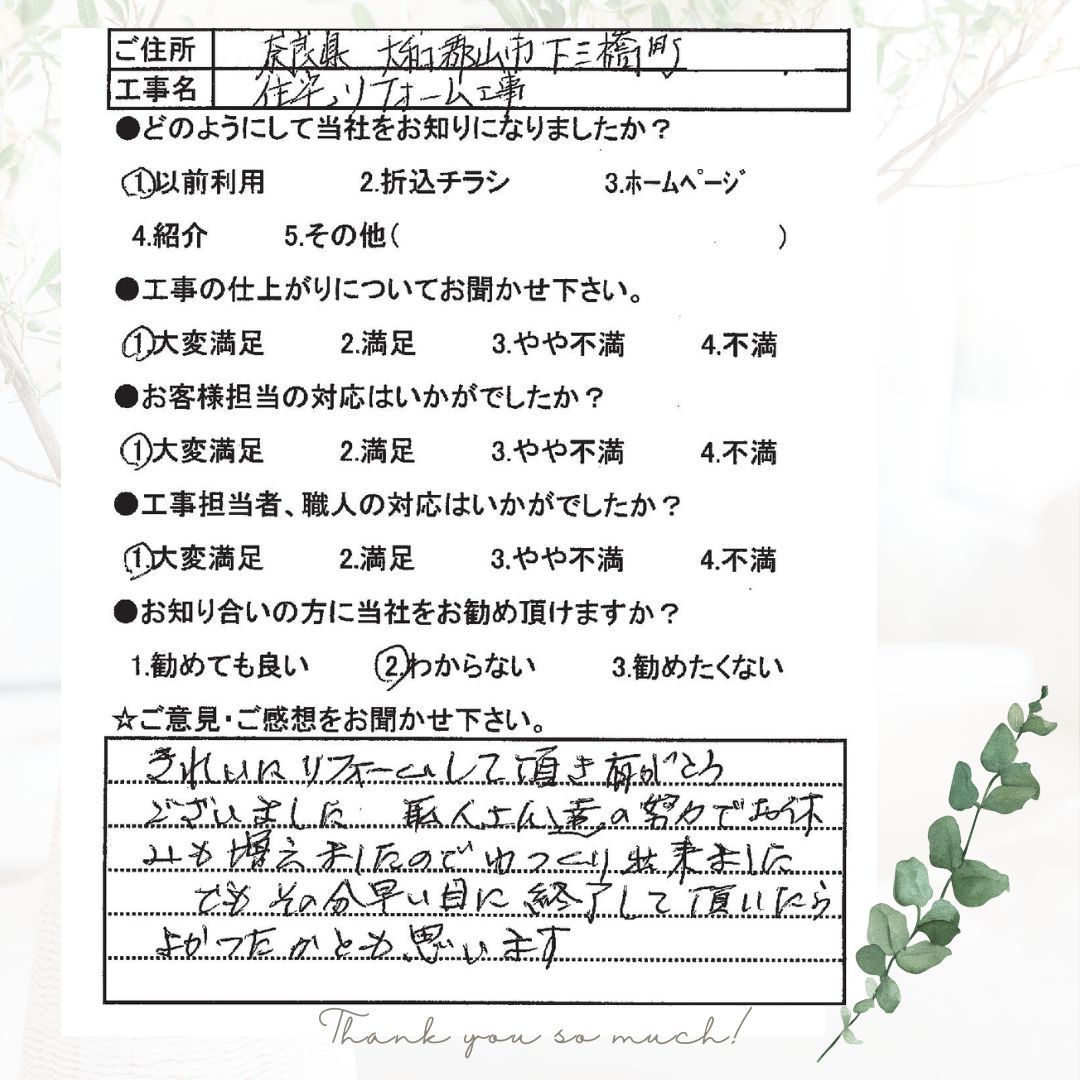 ご住所 奈良県 大和郡山市下三橋町
工事名 住宅リフォーム工事
●どのようにして当社をお知りになりましたか？
1.以前利用 2.折込チラシ 3.ﾎｰﾑﾍﾟｰｼﾞ
4.紹介 5.その他( )
●工事の仕上がりについてお聞かせ下さい。
1.大変満足 2.満足 3.やや不満 4.不満
●お客様担当の対応はいかがでしたか？
1.大変満足 2.満足 3.やや不満 4.不満
●工事担当者、職人の対応はいかがでしたか？
1.大変満足 2.満足 3.やや不満 4.不満
●お知り合いの方に当社をお勧め頂けますか？
1.勧めても良い 2.わからない 3.勧めたくない
☆ご意見・ご感想をお聞かせ下さい。
きれいにリフォームして頂き有がとう
ございました 職人さん達の努力でお休
みも増えましたのでゆっくり出来ました
でもその分早い目に終了して頂いたら
よかったかとも思います
Thank you so much!